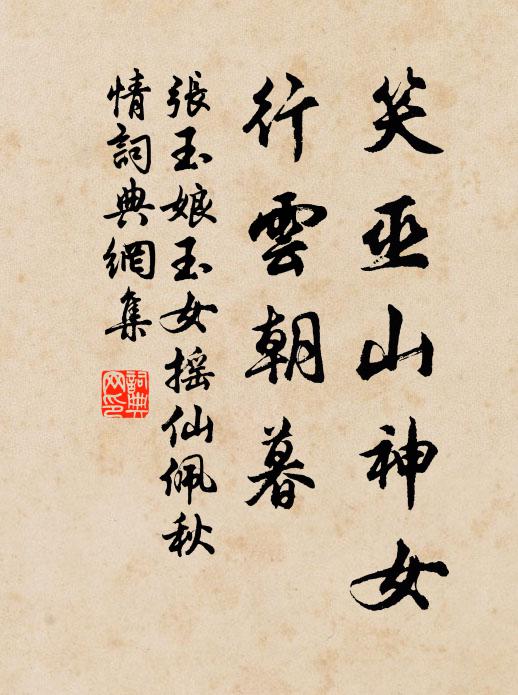 笑巫山神女
行雲朝暮
張玉娘玉女摇仙佩秋
情詞典網集
詞典網印